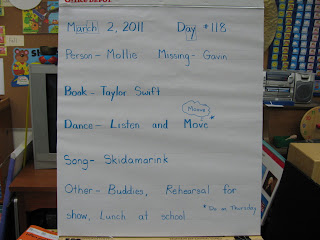 March 2, 2011 Day #118
Person- Mollie Missing- Gavin
Book- Taylor Swift
Dance- Listen and Move
Song- Skidamarink
Other- Buddies, Rehearsal for
show, Lunch at school
on Thursday